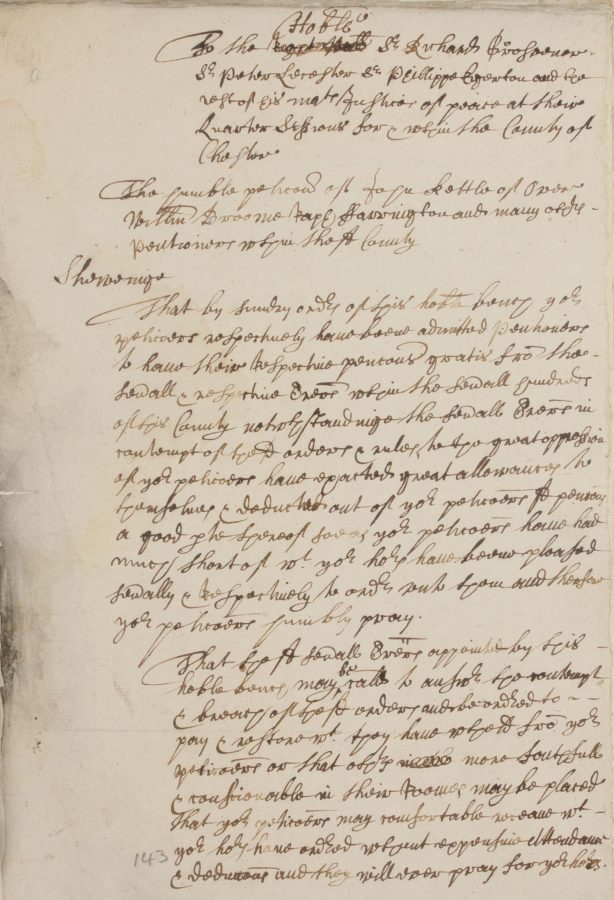 Hoble
To the Sr Richard Brooke
Sr Peter Leicester Sr Phillippe Egerton and the
rest of his mats Justices of peace at their
Quarter Sessions for & wthin the County of
Chester
The humble peticon of John Kettle of Over
Willm Broome Raph Harrington and many othr
Pentioners wthin the sd County
Shewenige
That by sundry ordrs of this hoble bench yor
peticoers respectively have beene admitted Pentioners
to have their respective pencons gratis from the
sevrall & respective Trērs wthin the sevrall hundreds
of this County notwthstandinge the sevrall Trērs in
contempt of the sd orders & rules, to the great oppression
of yor peticoers have exacted great allowances to
themselves & deducted out of yor peticoers sd pencons
a good pte thereof soe as yor peticoers have had
much short of wt yor honrs have beene pleased
sevrally & respectively to ordr unto them and therefore
yor peticoers humbly pray.
That the sd sevrall Trērs appointed by this
hoble bench may be calld to answr the contempt
& breach of the sd orders and be ordred to
pay & restore wt they have wthheld from yor
peticoers or that othrs more faithfull
& conscionable in their roomes may be placed
That yor peticoers may comfortable receave wt
yor honrs have ordred wthout expensive attendance
& deducons and they will ever pray for yor honrs.
143